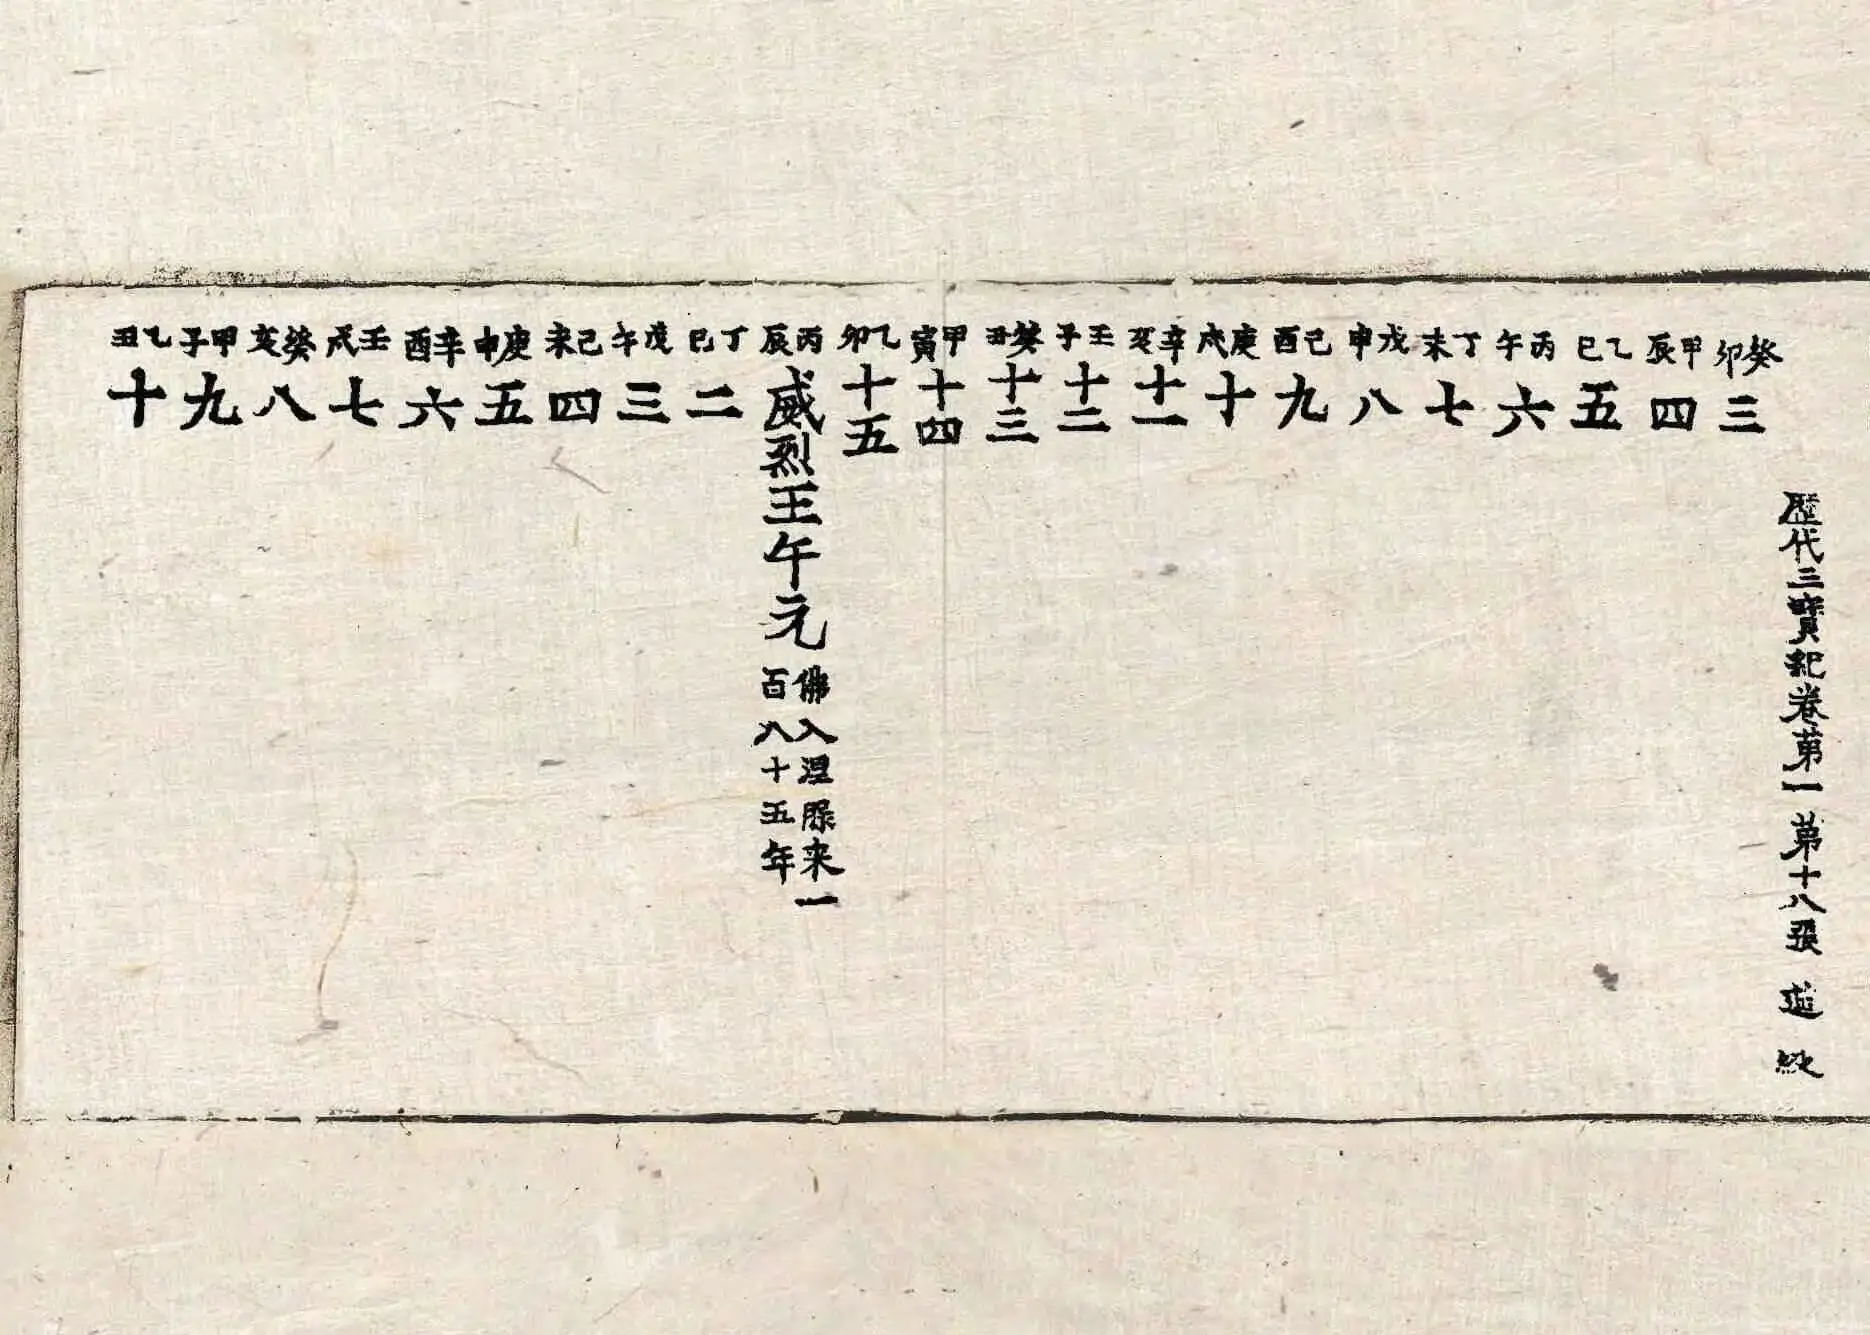 歷代三寶紀卷第一 第十八張
癸卯 三
甲辰 四
乙巳 五
丙午 六
丁未 七
戊申 八
己酉 九
庚戌 十
辛亥 十一
壬子 十二
癸丑 十三
甲寅 十四
乙卯 十五
丙辰 威烈王午元 佛入涅槃来一
百八十五年
丁巳 二
戊午 三
己未 四
庚申 五
辛酉 六
壬戌 七
癸亥 八
甲子 九
乙丑 十